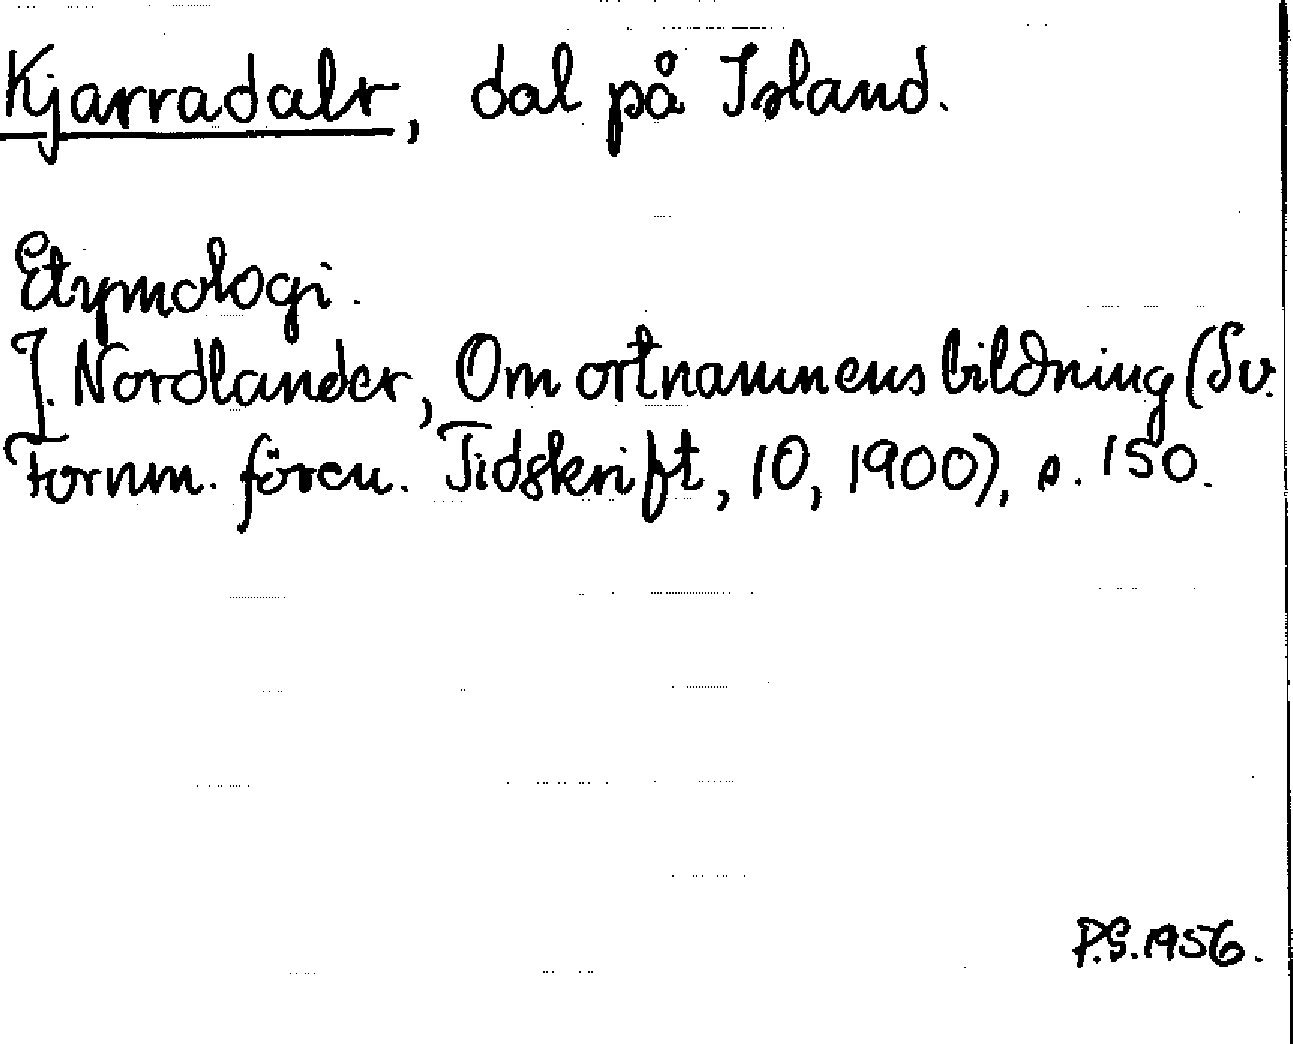 Kjarradalr, dal på Island.
Etymologi.
J. Nordlander, Om ortnamnens bildning (Sv.
Fornm. fören. Tidskrift, 10, 1900), s. 150.
P.S. 1956.